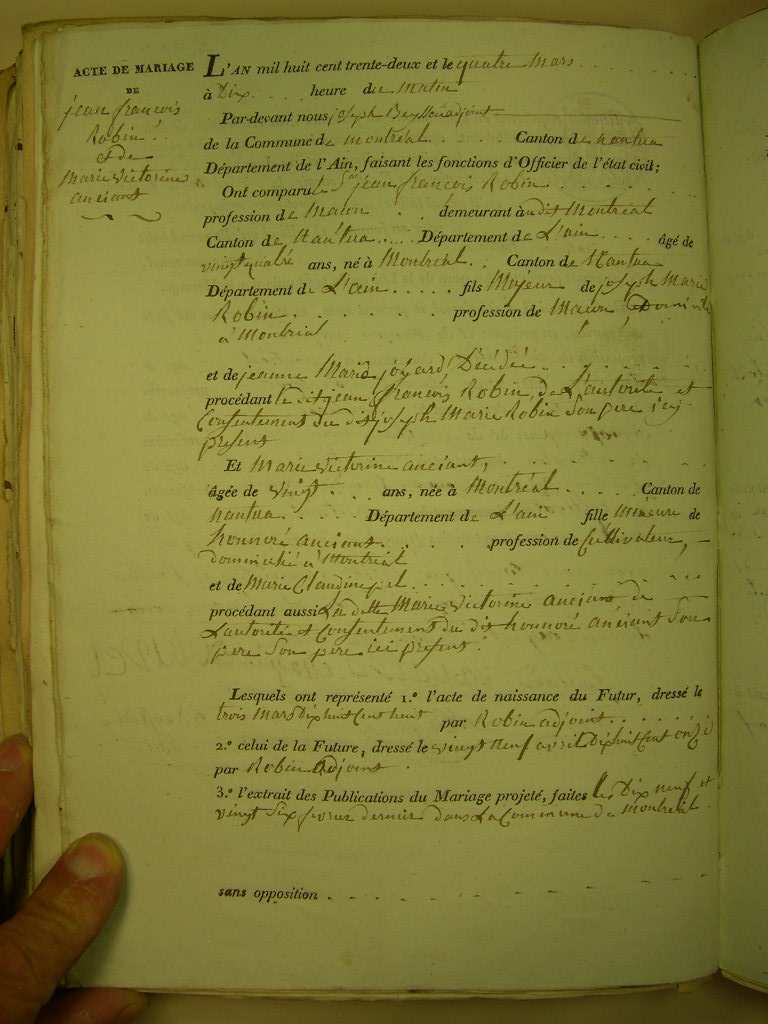 ACTE DE MARIAGE
DE
jean francois
Robin
et de
Marie Victorine
anciant
L'AN mil huit cent trente-deux et le quatre Mars
à Dix heure du Matin
Par-devant nous joseph adjoint
de la Commune de montréal Canton de nantua
Département de l'Ain, faisant les fonctions d'Officier de l'état civil;
Ont comparu le Sr jean françois Robin
profession de Macon demeurant à udit Montréal
Canton de Nantua Département de L'ain âgé de
vingt quatre ans, né à Montréal Canton de Nantua
Département de L'ain fils Majeur de joseph Marie
Robin profession de Macon, Domicilié
à Montréal
et de jeanne Marie joyard, Décédée
procédant le dit jean françois Robin, de L'autorité et
Consentement du dit joseph Marie Robin Son pere ici
présent
Et Marie Victorine anciant,
âgée de vingt ans, née à Montréal Canton de
nantua Département de L'ain fille Mineure de
honnoré anciant profession de Cultivateur,
domicilié à Montréal
et de Marie Claudine
procédant aussi La dette Marie Victorine anciant de
L'autorité et Consentement du dit honnoré anciant Son
pere Son pere ici présent.
Lesquels ont représenté 1.º l'acte de naissance du Futur, dressé le
trois Mars Dix huit Cent huit par Robin adjoint
2.º celui de la Future, dressé le vingt Neuf avril Dix huit Cent onze
par Robin Adjoint.
3.º l'extrait des Publications du Mariage projeté, faites les Dix neuf et
vingt Six fevrier dernier dans La Commune de Montréal.
sans opposition